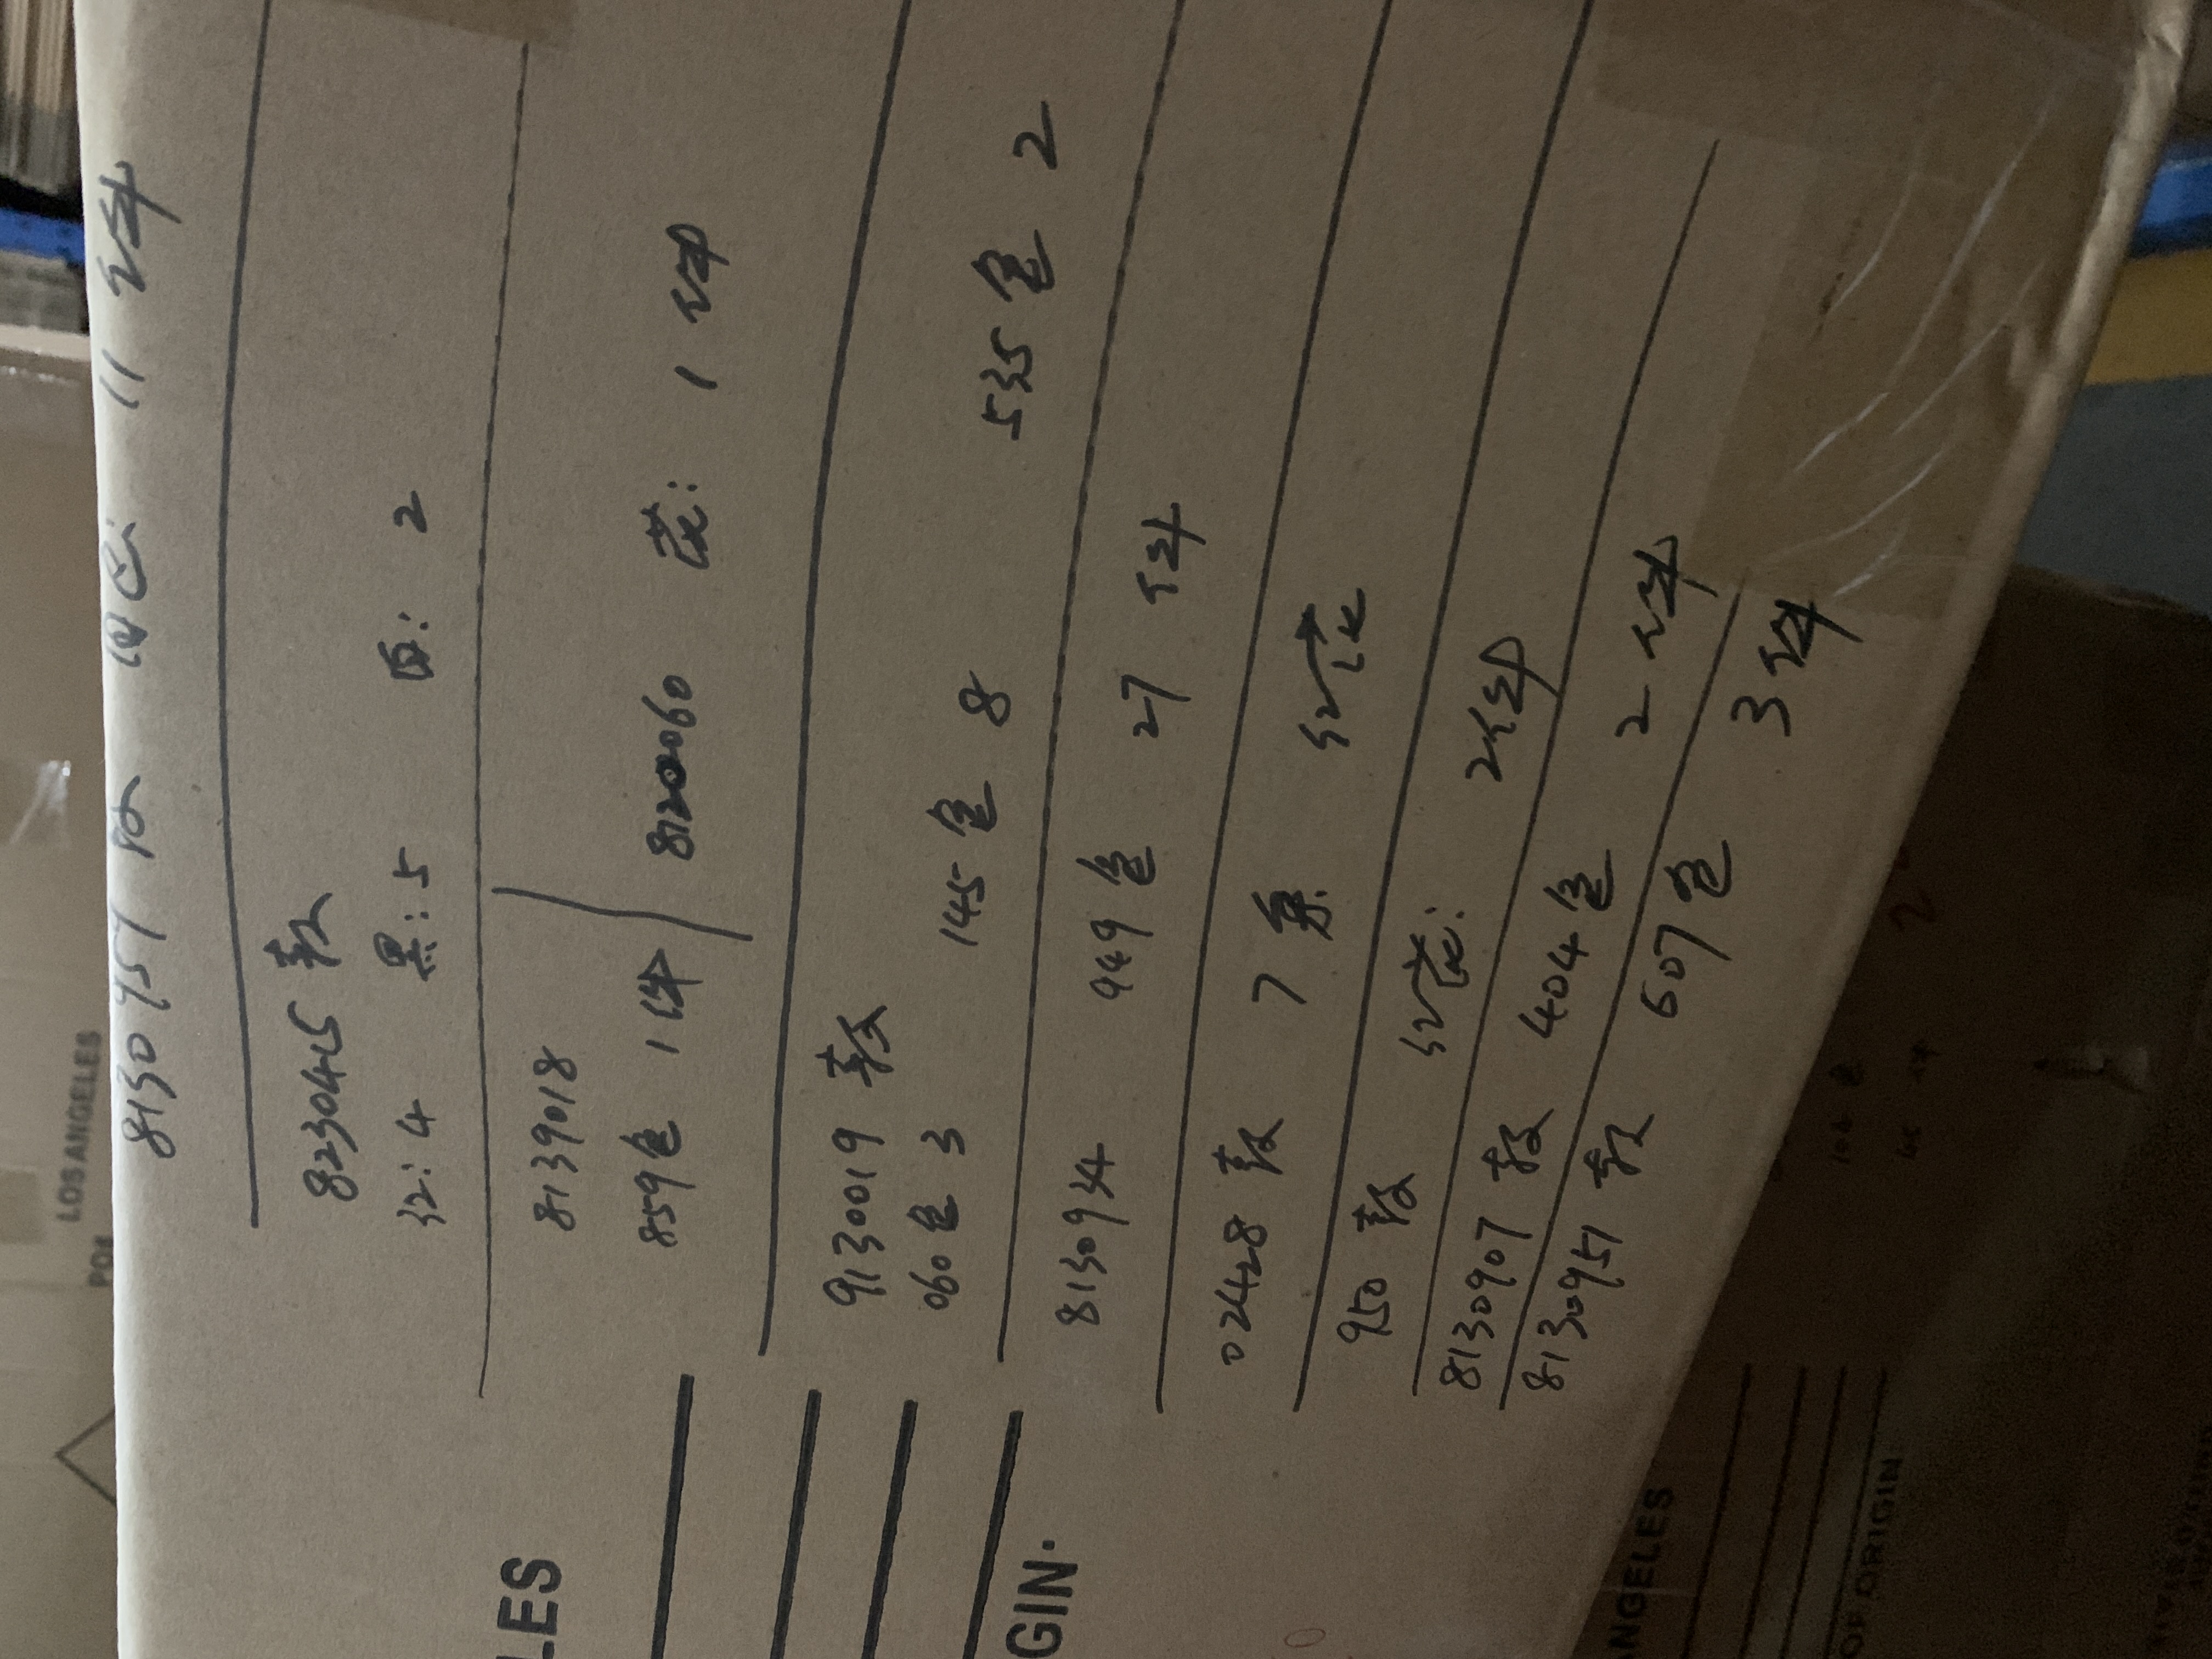 LOS ANGELES
8130959 款 白色: 11 件
8230415 款
红: 4 黑: 5 白: 2
LES
8139018
859色 1件 8120060 花: 1件
9130019 款
060色 3 145色 8 535色 2
GIN.
8130934 949色 27件
02428 款 7条 红花
950 款 红花: 2件
8130907 款 404色 2件
8130951 款 607色 3件
ANGELES
OF ORIGIN